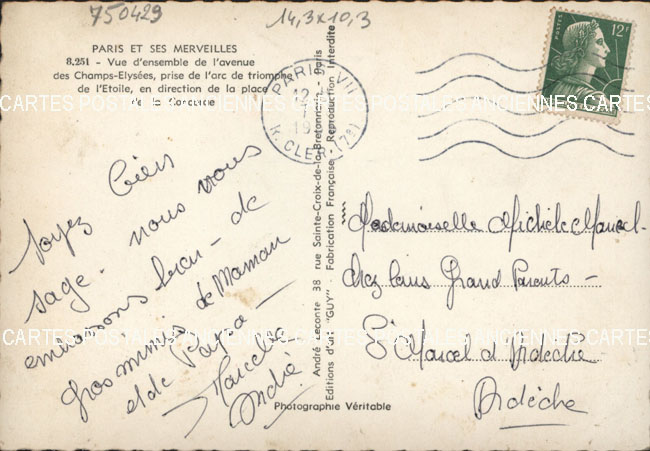 750429
14,3x10,3
PARIS ET SES MERVEILLES
8.251 - Vue d'ensemble de l'avenue
des Champs-Elysées, prise de l'arc de triomphe
de l'Etoile, en direction de la place
de la Concorde
Soyez bien
sage. nous vous
embrassons bien - de
gros mimis de Maman
et de Papa -
Marcelle
André
Photographie Véritable
André Leconte 38 rue Sainte-Croix-de-la-Bretonnerie - Paris
Editions d'art "GUY" - Fabrication Française - Reproduction Interdite
PARIS VII
12
R. CLER (7e)
POSTES
12F
Mademoiselle Michèle Marcel
chez Grand Parents -
St Marcel d'Ardèche
Ardèche
CARTES POSTALES ANCIENNES CARTES POSTALES ANCIENNES
CARTES POSTALES ANCIENNES CARTES POSTALES ANCIENNES